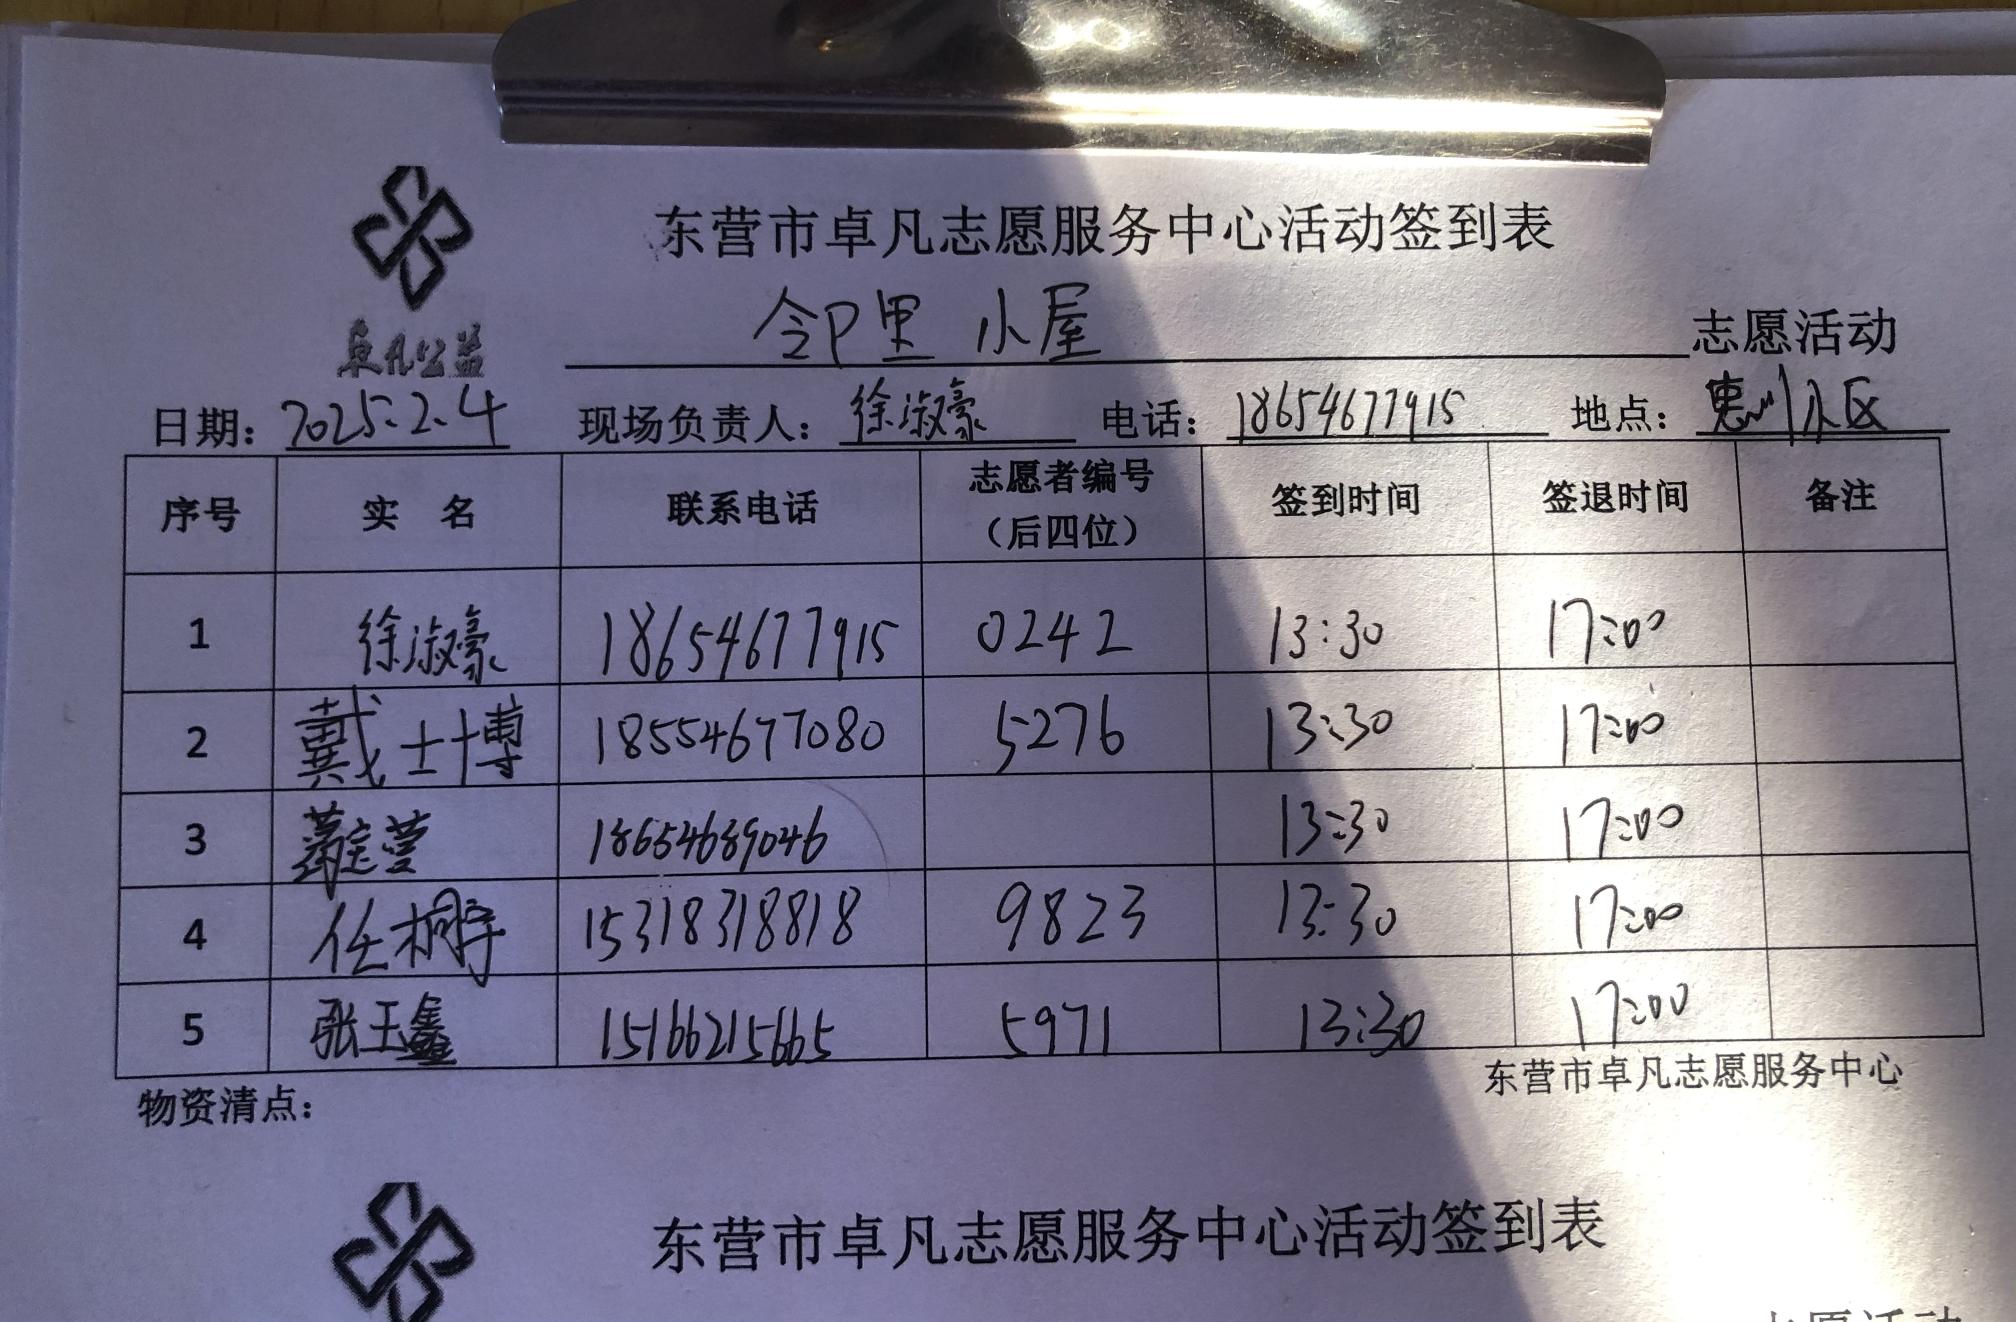 东营市卓凡志愿服务中心活动签到表
卓凡公益
邻里 小屋 志愿活动
日期：2025.2.4 现场负责人：徐淑豪 电话：18654677915 地点：惠州小区
序号 实 名 联系电话 志愿者编号（后四位） 签到时间 签退时间 备注
1 徐淑豪 18654677915 0242 13:30 17:00
2 戴士博 18554677080 5276 13:30 17:00
3 18654689046 13:30 17:00
4 任桐宇 15318318818 9823 13:30 17:00
5 张玉鑫 15166215665 5971 13:30 17:00
东营市卓凡志愿服务中心
物资清点：
东营市卓凡志愿服务中心活动签到表
志愿活动